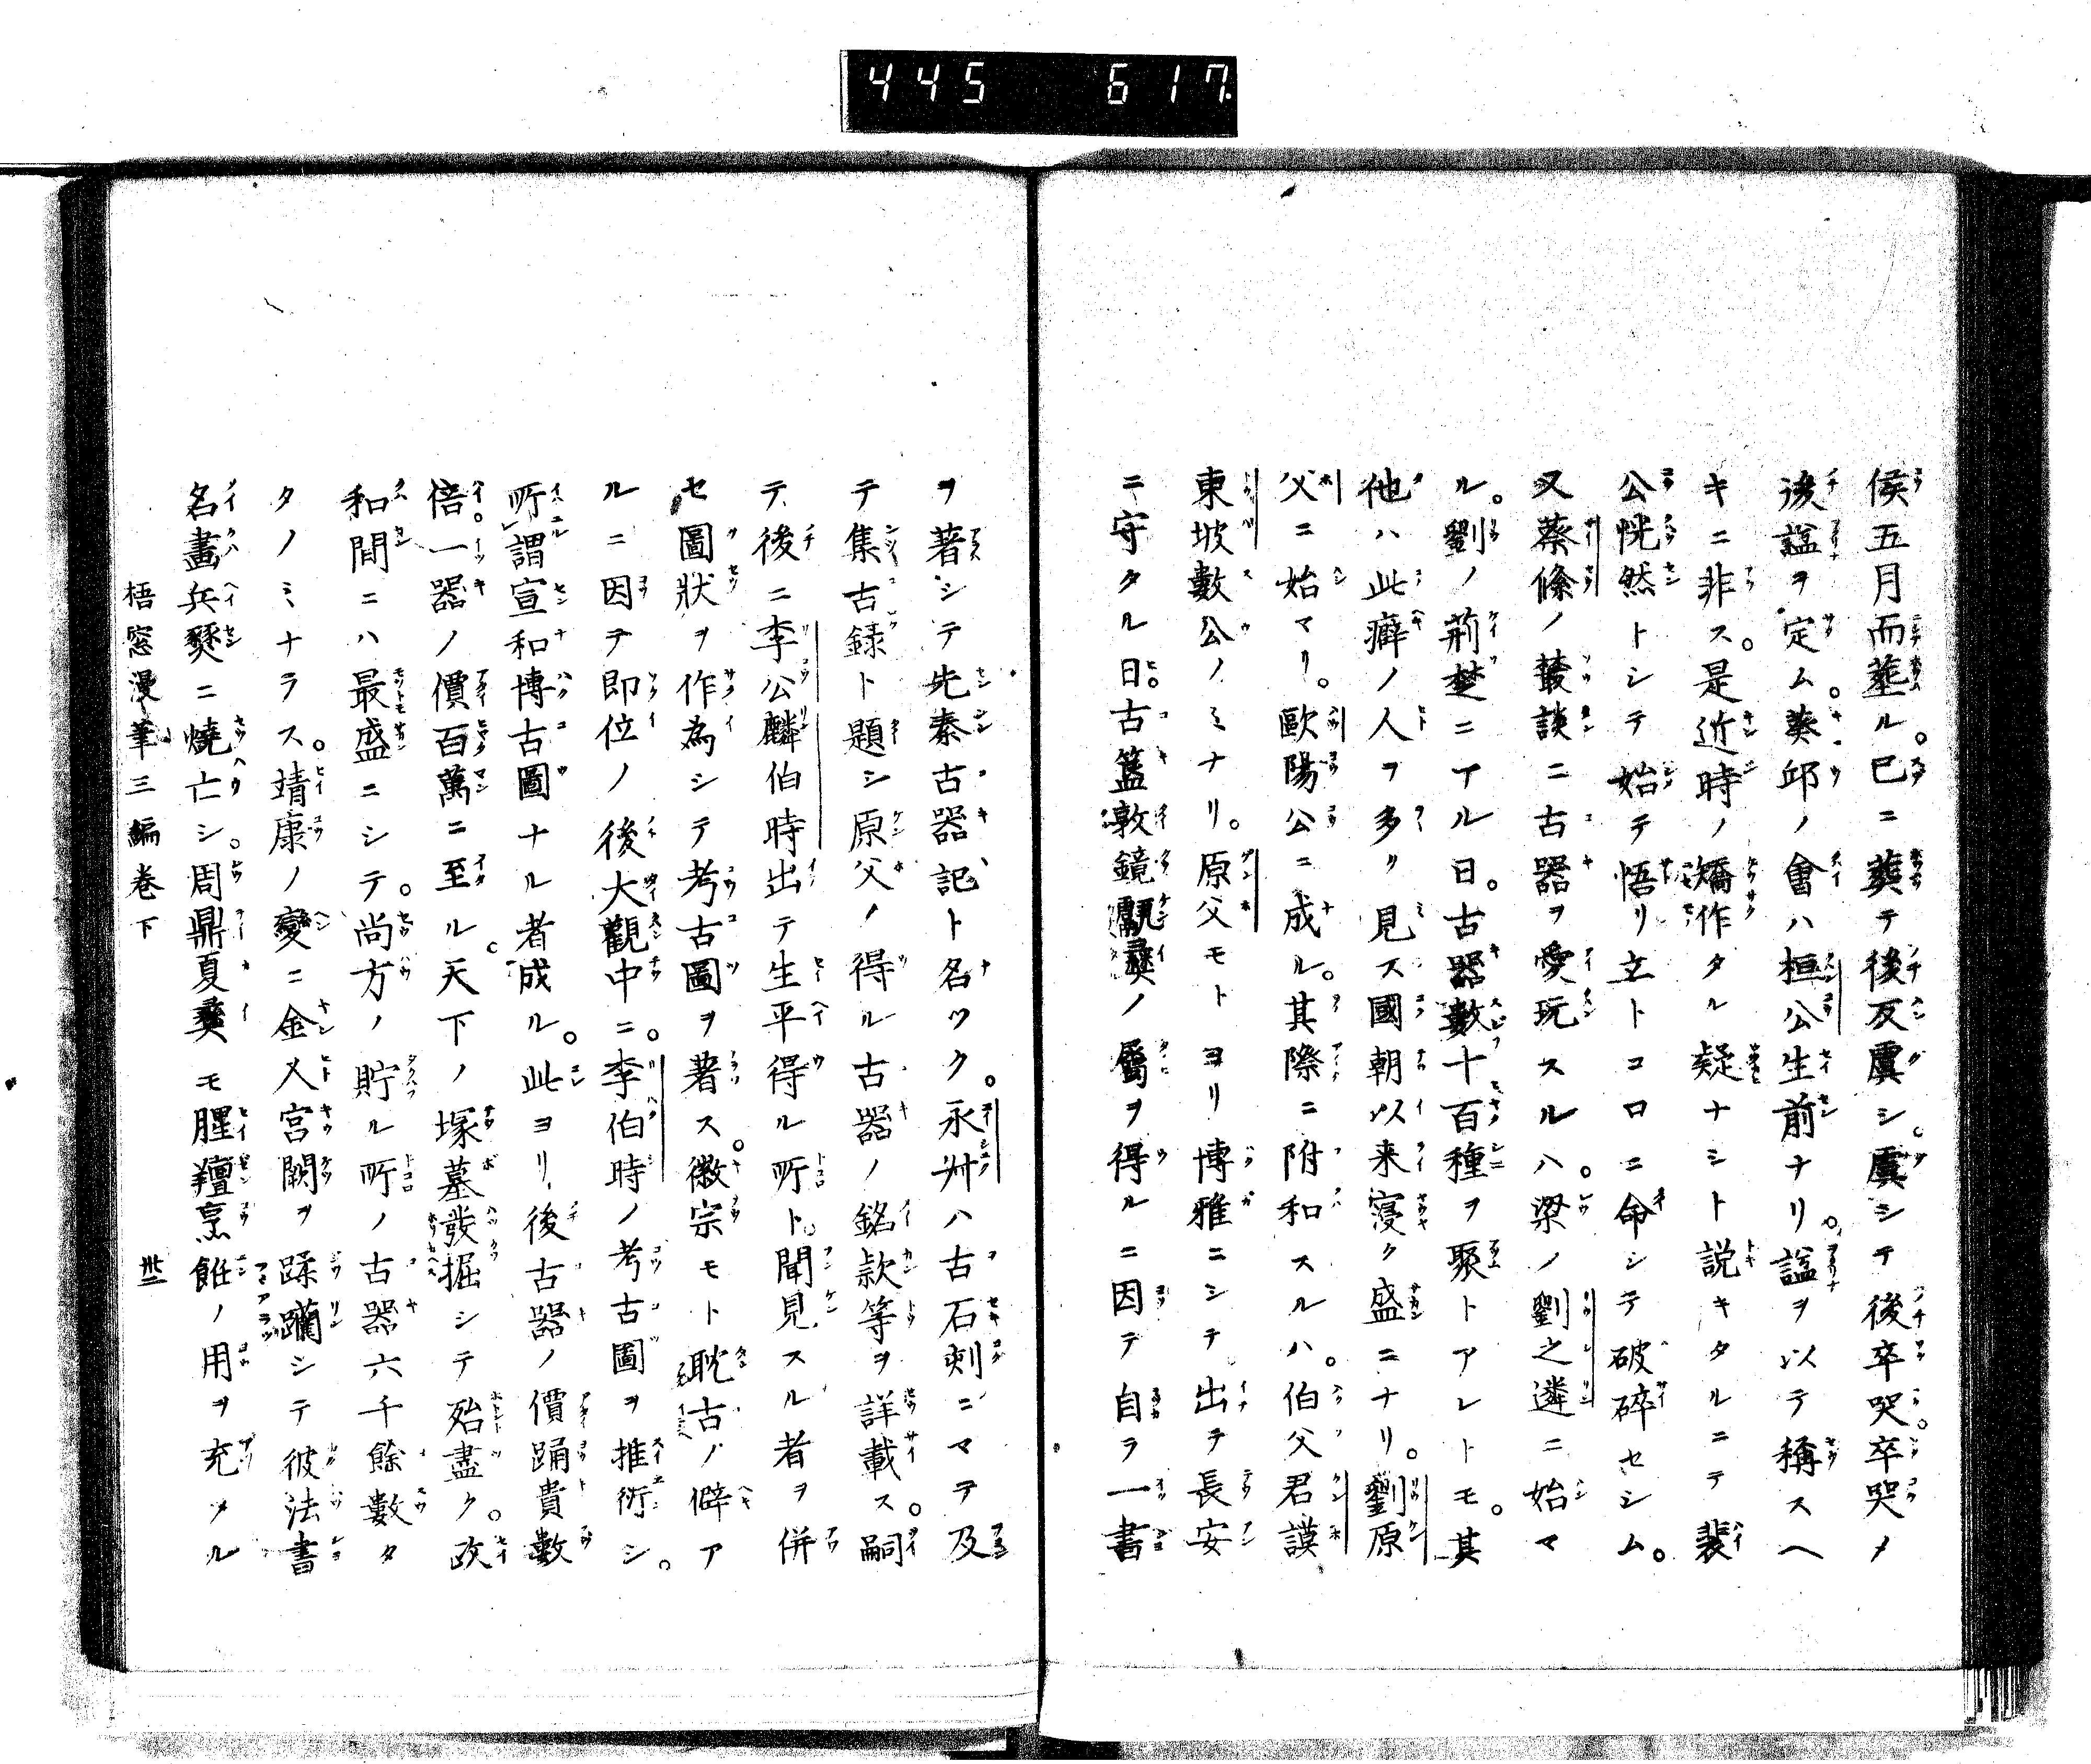 445 617
侯五月而葬ル。已ニ葬テ後反虞シ。虞シテ後卒哭。卒哭ノ
後諡ヲ定ム。葵邱ノ會ハ桓公生前ナリ。諡ヲ以テ稱スヘ
キニ非ス。是近時ノ矯作タル疑ナシト説キタルニテ裴
公恍然トシテ始テ悟リ立トコロニ命シテ破碎セシム。
又蔡絛ノ叢談ニ古器ヲ愛玩スルハ。梁ノ劉之遴ニ始マ
ル。劉ノ荊楚ニアル日。古器數十百種ヲ聚トアレトモ。其
他ハ此癖ノ人ヲ多ク見ス國朝以来寖ク盛ニナリ。劉原
父ニ始マリ。歐陽公ニ成ル。其際ニ附和スルハ。伯父君謨
東坡數公ノミナリ。原父モトヨリ博雅ニシテ出テ長安
ニ守タル日。古簋敦鏡甗彝ノ屬ヲ得ルニ因テ自ラ一書
ヲ著シテ先秦古器記ト名ツク。永叔ハ古石刻ニマテ及
テ集古録ト題シ原父ノ得ル古器ノ銘款等ヲ詳載ス。嗣
テ後ニ李公麟伯時出テ生平得ル所ト。聞見スル者ヲ併
セ圖狀ヲ作為シテ考古圖ヲ著ス。徽宗モト耽古ノ僻ア
ルニ因テ即位ノ後大觀中ニ。李伯時ノ考古圖ヲ推衍シ。
所謂宣和博古圖ナル者成ル。此ヨリ後古器ノ價踊貴數
倍。一器ノ價百萬ニ至ル。天下ノ塚墓發掘シテ殆盡ク。政
和間ニハ最盛ニシテ。尚方ノ貯ル所ノ古器六千餘數タ
タノミナラス。靖康ノ變ニ金人宮闕ヲ蹂躪シテ彼法書
名畫兵燹ニ燒亡シ。周鼎夏彝モ腥羶烹飪ノ用ヲ充ツル
梧窓漫筆三編巻下 卅二